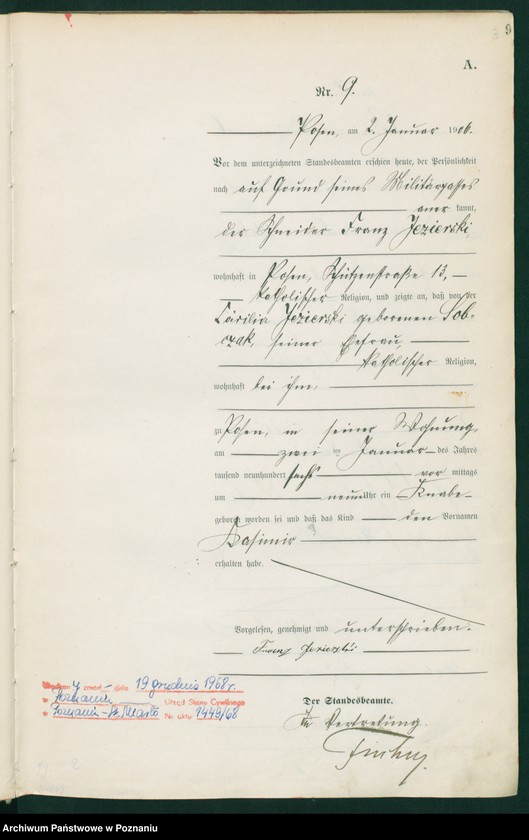 9
A.
Nr. 9.
Posen, am 2. Januar 1906.
Vor dem unterzeichneten Standesbeamten erschien heute, der Persönlichkeit
nach auf Grund seines Militärpasses
aner kannt,
der Schneider Franz Jezierski,
wohnhaft in Posen, Schützenstraße 13,
katholischer Religion, und zeigte an, daß von der
Cäcilia Jezierski geborenen Sob-
czak, seiner Ehefrau,
katholischer Religion,
wohnhaft bei ihm,
zu Posen, in seiner Wohnung,
am zwei ten Januar des Jahres
tausend neunhundert sechs vor mittags
um neun Uhr ein Knabe
geboren worden sei und daß das Kind den Vornamen
Kasimir
erhalten habe.
Vorgelesen, genehmigt und unterschrieben.
Franz Jezierski
y zmarł dnia 19 grudnia 1968 r.
w Poznaniu Urząd Stanu Cywilnego
w Poznaniu-St. Miasto Nr aktu 1449/68
Der Standesbeamte.
In Vertretung.
Archiwum Państwowe w Poznaniu